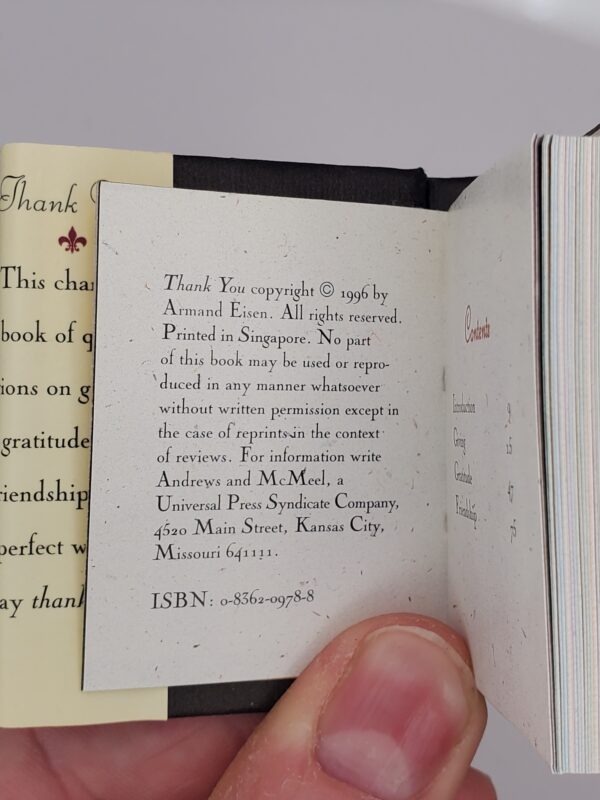 Thank
This
book of
ions on
gratitude
perfect
Thank You copyright © 1996 by
Armand Eisen. All rights reserved.
Printed in Singapore. No part
of this book may be used or repro-
duced in any manner whatsoever
without written permission except in
the case of reprints in the context
of reviews. For information write
Andrews and McMeel, a
Universal Press Syndicate Company,
4520 Main Street, Kansas City,
Missouri 641111.
ISBN: 0-8362-0978-8
Contents
Introduction 9
Giving 15
Gratitude 47
Friendship 75